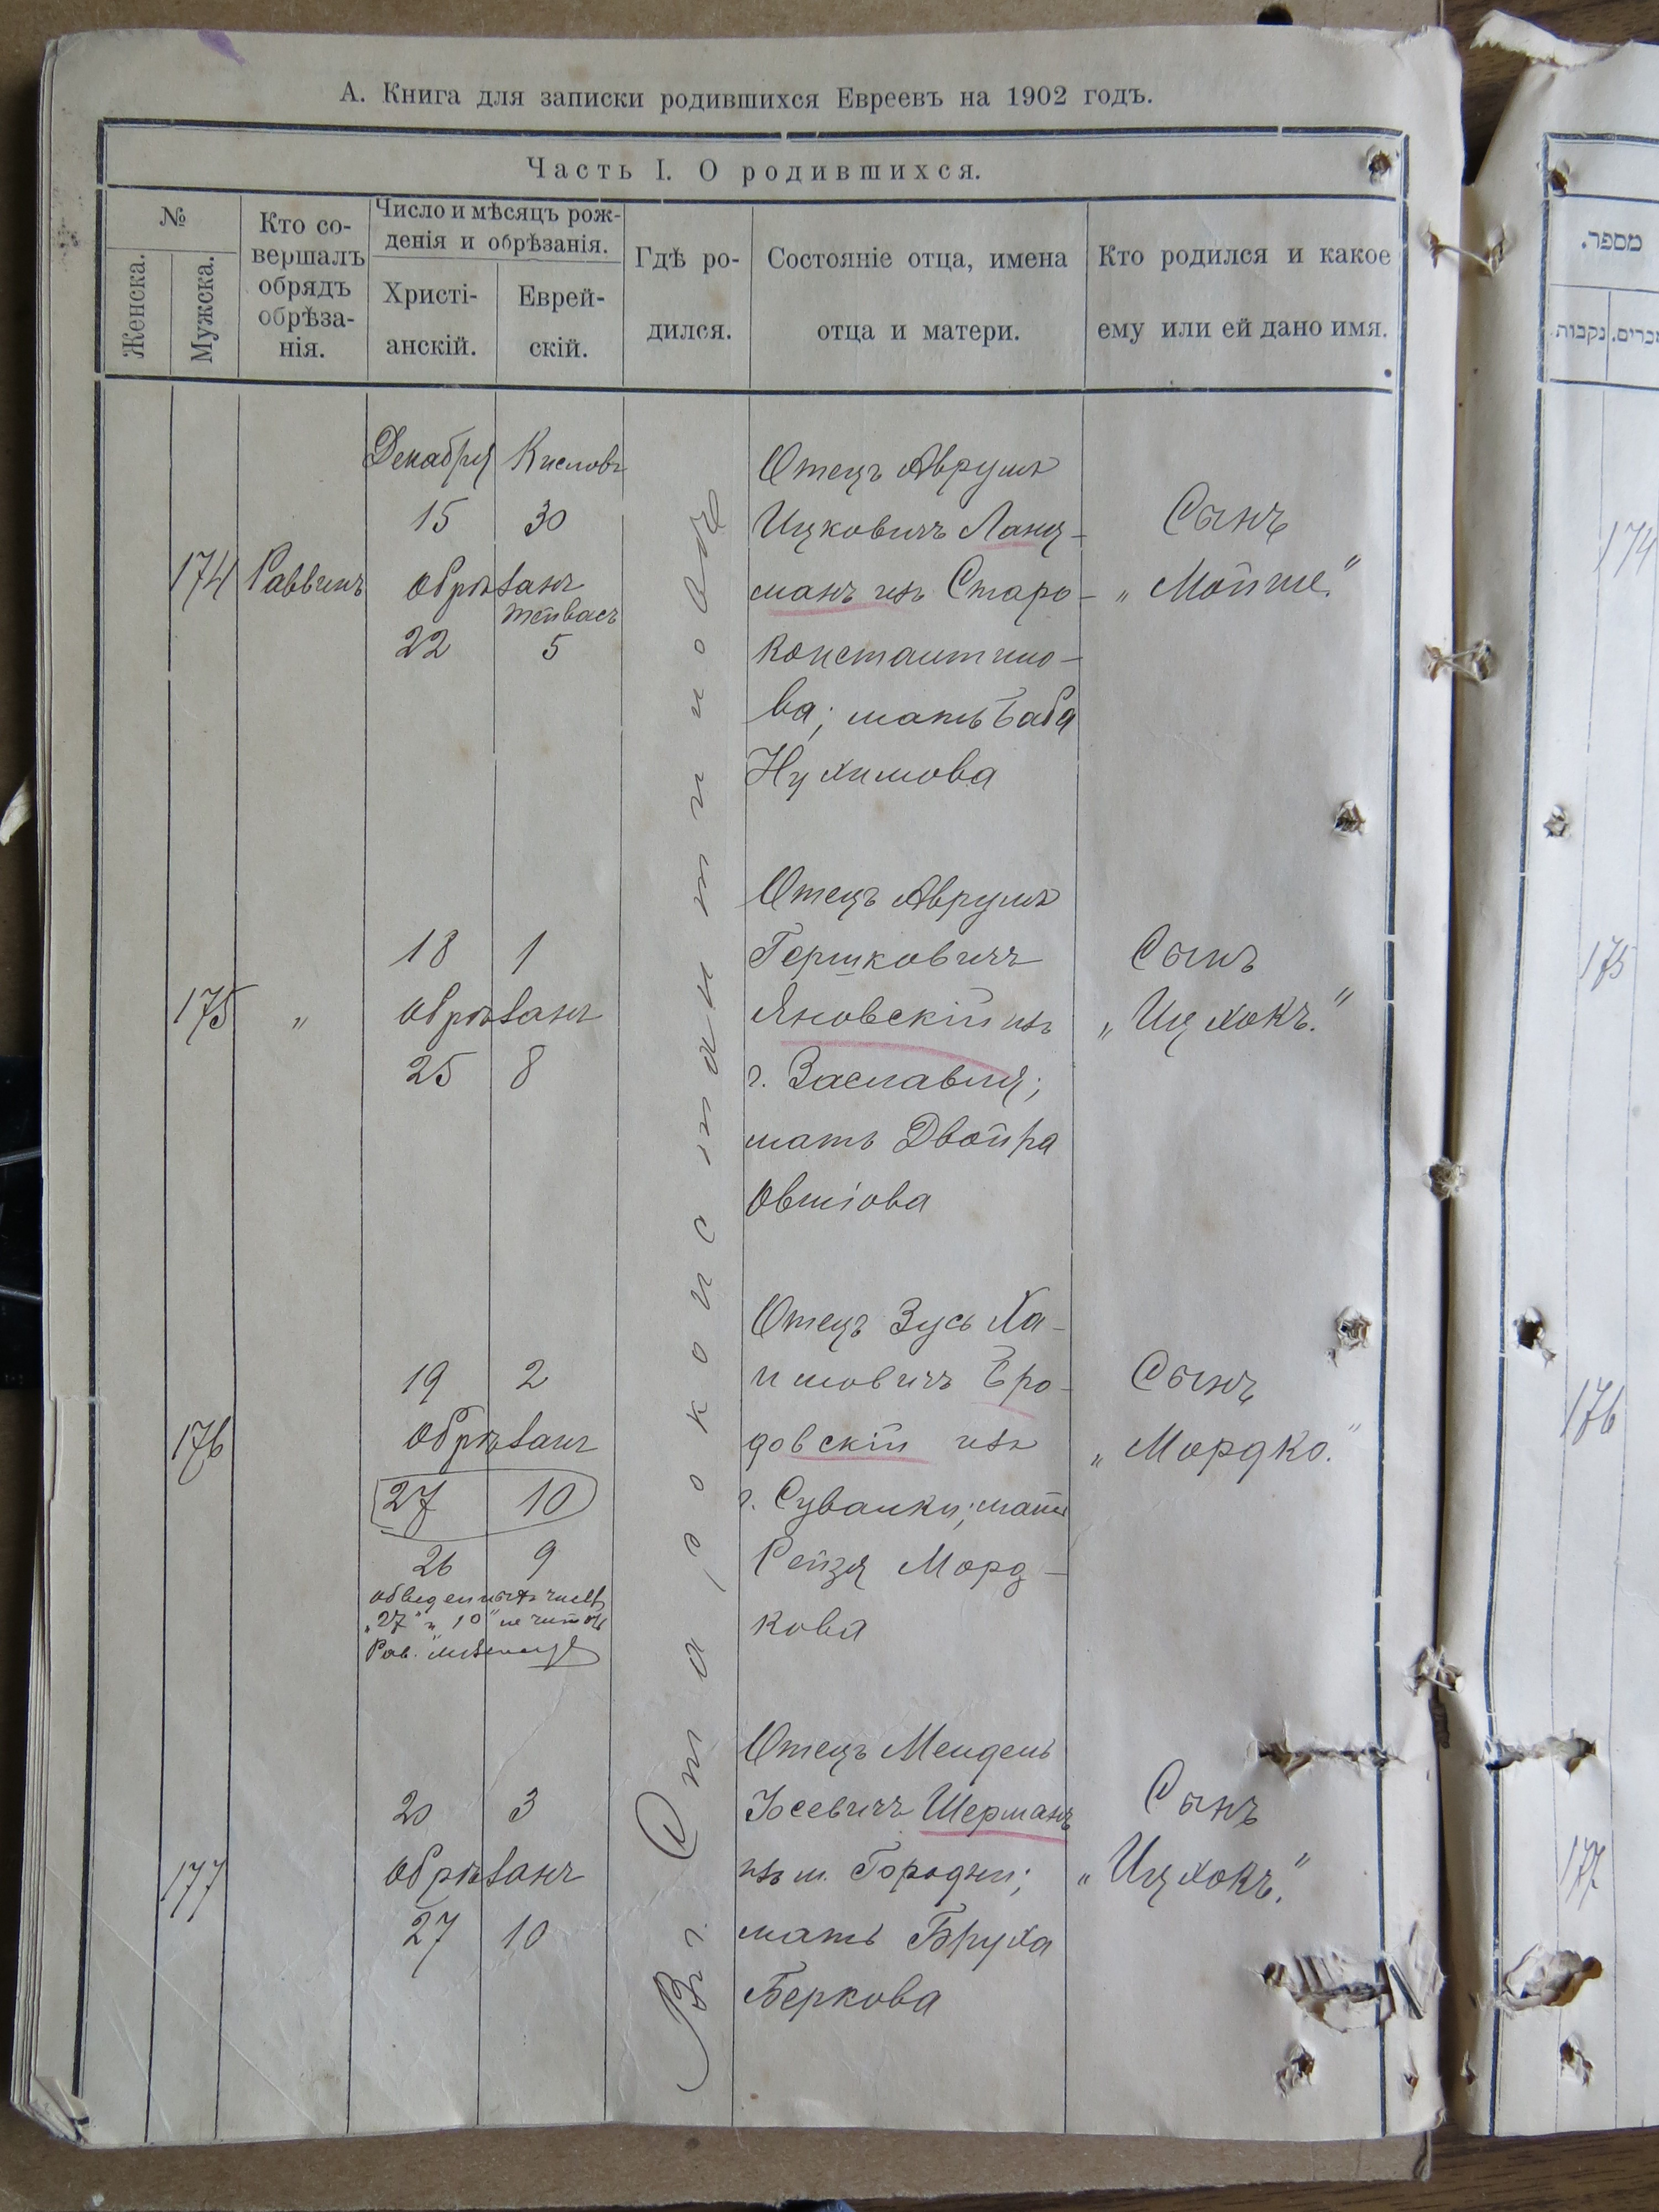 А. Книга для записки родившихся Евреевъ на 1902 годъ.
Часть I. О родившихся.
№
Женска.
Мужска.
Кто со-
вершалъ
обрядъ
обрѣза-
нія.
Число и мѣсяцъ рож-
денія и обрѣзанія.
Христі-
анскій.
Еврей-
скій.
Гдѣ ро-
дился.
Состояніе отца, имена
отца и матери.
Кто родился и какое
ему или ей дано имя.
Въ г. Староконстантиновѣ
174
Раввинъ
Декабря Кисловъ
15 30
обрѣзанъ
Тейвасъ
22 5
Отецъ Аврумъ
Ицковичъ Ланц-
манъ изъ Старо-
константино-
ва; мать Баба
Нухимова
Сынъ
„Мойше."
175
"
18 1
обрѣзанъ
25 8
Отецъ Аврумъ
Гершковичъ
Яновскій изъ
г. Заславля;
мать Двойра
Овшіова
Сынъ
„Ицхокъ."
176
19 2
обрѣзанъ
27 10
26 9
обведенныхъ числъ
„27" и „10" не читать
Рав.
Отецъ Зусь Ха-
имовичъ Бро-
довскій изъ
г. Сувалки; мать
Рейзя Морд-
кова
Сынъ
„Мордко."
177
20 3
обрѣзанъ
27 10
Отецъ Мендель
Іосевичъ Шерманъ
изъ м. Городни;
мать Бруха
Беркова
Сынъ
„Ицхокъ."
מספר.
נקבות
זכרים.
174
175
176
177